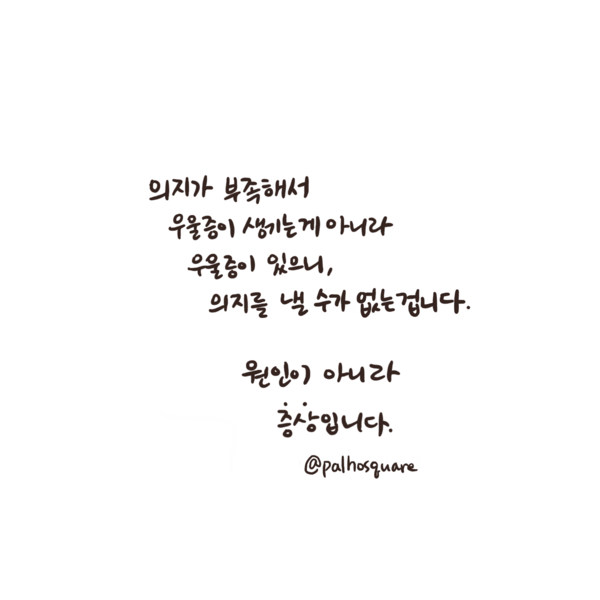 의지가 부족해서
우울증이 생기는게 아니라
우울증이 있으니,
의지를 낼 수가 없는겁니다.
원인이 아니라
증상입니다.
@palhosquare